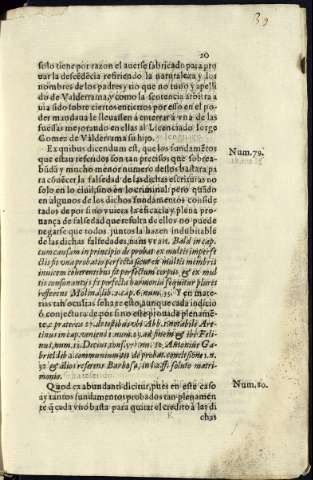 39
20
solo tiene por razon el auerse fabricado para pro
uar la descẽdẽcia refiriẽdo la naturaleza y los
nombres de los padres y no que no tuuo y apelli
do de Valderrama, y como la sentencia arbitra a
uia sido sobre ciertos entierros por esso en el po-
der mandaua le lleuassen a enterrar a vna de las
suessas mejorando en ellas al Licenciado Iorge
Gomez de Valderrama su hijo.
Ex quibus dicendum est, que los fundamẽtos Num. 79.
que estan referidos son tan precisos que sobrea-
bũda y mucho menor numero dellos basta ra pa
ra conocer la falsedad de las dichas escrituras no
solo en lo ciuil, sino en lo criminal: pero quãdo
en algunos de los dichos fundamentos conside
rados de por si no viera la eficacia y plena pro-
uança de falsedad que resulta de ellos no puede
negarse que todos juntos la hazen indubitable
de las dichas falsedades, nam vt an. Bald in cap.
cum causam in principio de probat. ex multis imperfe
ctis fit vna probatio perfecta sicut ex multis mẽbris
inuicem coherentibus fit perfectum corpus, & ex mul
tis consonantijs fit perfecta harmonia sequitur plures
refferens Molina lib. 2. cap. 6. num. 35. Y en mate-
rias tan ocultas sobra esto aunque cada indicio
ò conjectura de por si no este prouada plenamẽ-
te.
& alios referens Barbosa, in l. si soluto matri-
monio.
Quod ex abundanti dicitur, pues en este caso Num. 80.
ay tantos fundamentos probados tan plenamẽn
te q̃ cada vno basta para quitar el credito à las di
chas